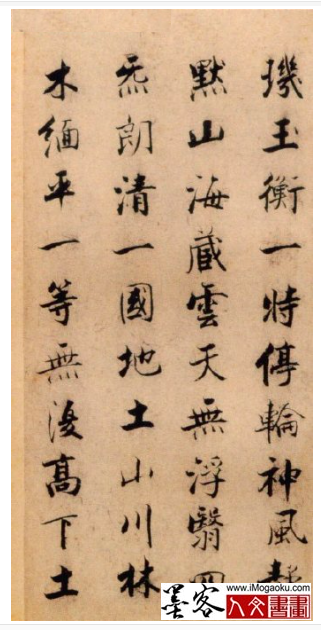 璣玉衡一時停輪神風靜
默山海藏雲天無浮翳四
炁朗清一國地土山川林
木緬平一等無復高下土
墨客
www.iMogaoku.com
人文書畫